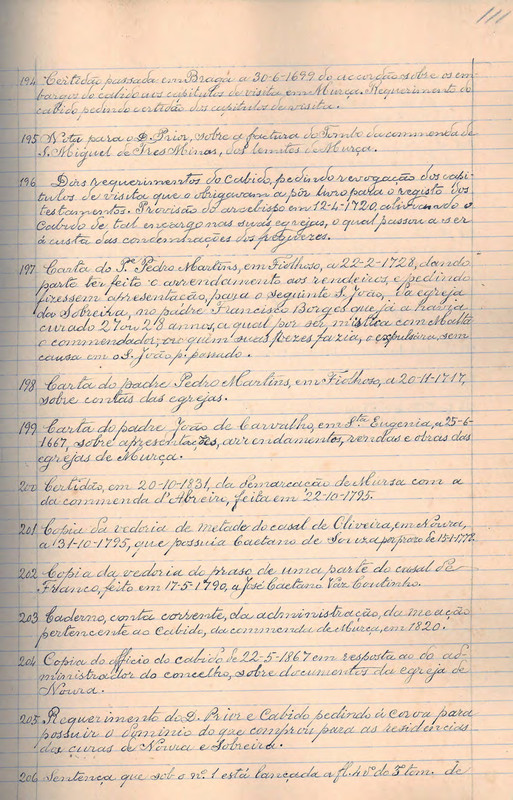 111
194 Certidão passada em Braga a 30-6-1699 do accordão sobre os em-
bargos do cabido aos capitulos de visita em Murça. Requerimento do
cabido pedindo certidão dos capitulos da visita.
195 Nota para o D. Prior, sobre a factura do Tombo da commenda de
S. Miguel de Tres Minas, dos limites de Murça.
196 Dois requerimentos do Cabido, pedindo revogação dos capi-
tulos de visita que o obrigavam a pôr livro para o registo dos
testamentos. Provisão do arcebispo em 12-4-1720, alliviando o
Cabido de tal encargo nas suas egrejas, o qual passou a ser
á custa das condemnações dos freguezes.
197 Carta do Pe Pedro Martins, em Fiolhoso, a 22-2-1728, dando
parte ter feito o arrendamento aos rendeiros, e pedindo
fizessem apresentação, para o seguinte S. João, da egreja
da Sobreira, no padre Francisco Borges que já a havia
curado 27 ou 28 annos, a qual por ser mistica com Malta
o commendador, ou quem suas vezes fazia, o expulsára, sem
causa em o S. João p. passado.
198 Carta do padre Pedro Martins, em Fiolhoso, a 20-11-1717,
sobre contas das egrejas.
199 Carta do padre João de Carvalho, em Sta Eugenia, a 25-6-
1667, sobre apresentações, arrendamentos, rendas e obras das
egrejas de Murça.
200 Certidão, em 20-10-1831, da demarcação de Mursa com a
da commenda d'Abreiro, feita em 22-10-1795.
201 Copia da vedoria de metade do casal de Oliveira, em Noura,
a 31-10-1795, que possuia Caetano de Souza por prazo de 15-1-1772
202 Copia da vedoria do praso de uma parte do casal de
Franco, feito em 17-5-1790, a José Caetano Vaz Coutinho.
203 Caderno, conta corrente, da administração, da meação
pertencente ao Cabido, da commenda de Murça, em 1820.
204 Copia do officio do cabido de 22-5-1867 em resposta ao do ad-
ministrador do concelho, sobre documentos da egreja de
Noura.
205 Requerimento do D. Prior e Cabido pedindo á coroa para
possuir o dominio do que comprou para as residencias
dos curas de Noura e Sobreira.
206 Sentença que sob o nº 1 está lançada a fl. 4 vº do 3º tom. de